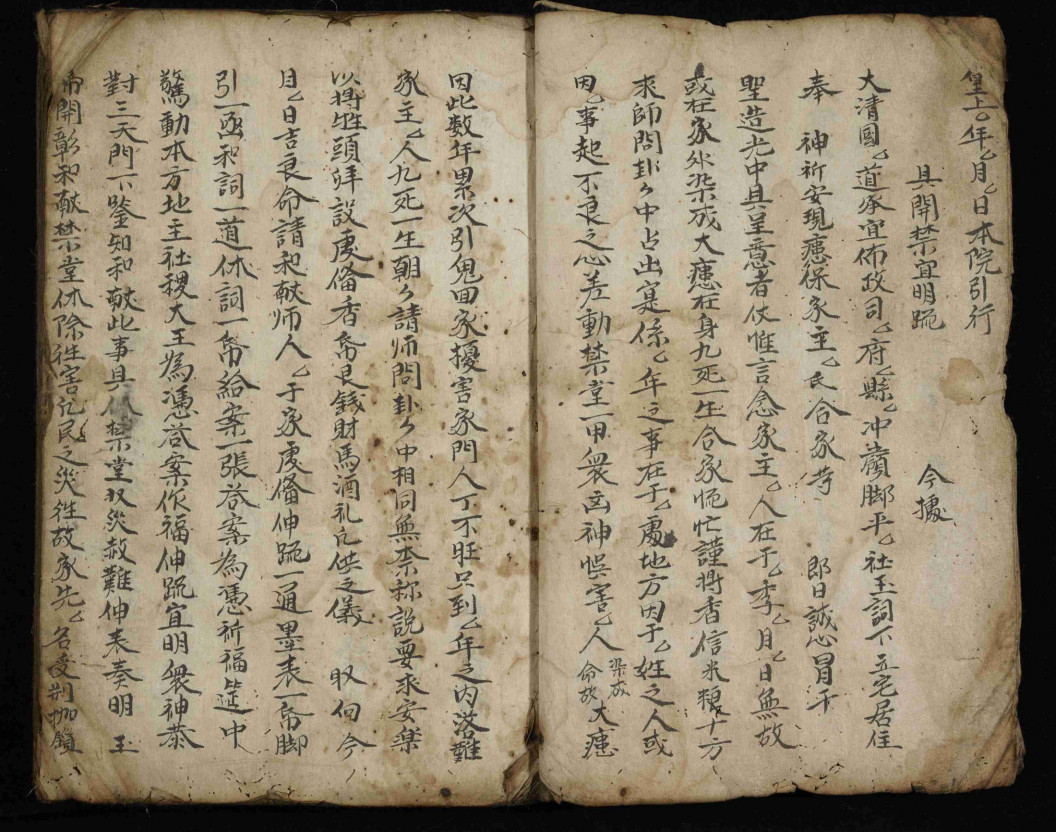 皇上乙年乙月乙日本院引行
具開禁宜明䟽　今據
大清國乙道承宣佈政司乙府乙縣乙冲嶺脚平乙社王詞下立宅居住
奉　神祈安現瘧保家主乙氏合家等　即日誠心冒干
聖造光中具呈意者伏惟言念家主乙人在于乙年乙月乙日無故
或在家外染成大瘧在身九死一生合家恾忙謹將香信米粮十方
求師問卦々中占出寔係乙年之事在于乙處地方因于乙姓之人或
因乙事起不良之心差動禁堂一甲衆凶神悞害乙人染成命故大瘧
因此数年累次引鬼回家擾害家門人丁不旺只到乙年之内落難
家主乙人九死一生朝々請师問卦々中相同無奈称說要求安樂
以將牲頭拜設虔俻香帛艮錢財馬酒礼乞供之儀　取向今
月乙日吉良命請和献师人乙于家虔俻伸䟽一通墨表一帋脚
引一函和詞一道休詞一帋給案一張荅案為憑祈福筵中
驚動本方地主社稷大王為憑荅案作福伸䟽宜明衆神恭
對三天門下鑒知和献此事具休禁堂収災赦難伸表奏明　玉
帝開彰和献禁堂休除徃害乞民之災徃故家先乙名受刑枷鎖